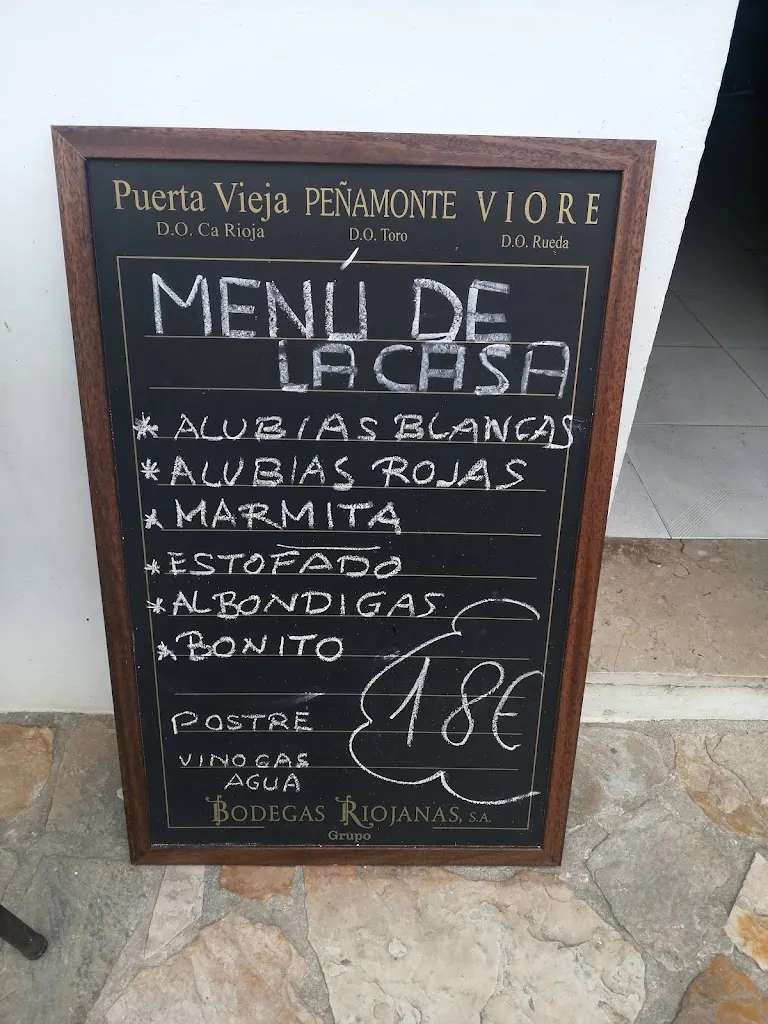 Puerta Vieja PEÑAMONTE VIORE
D.O. Ca Rioja D.O. Toro D.O. Rueda
MENÚ DE
LA CASA
* ALUBIAS BLANCAS
* ALUBIAS ROJAS
* MARMITA
* ESTOFADO
* ALBONDIGAS
* BONITO
18€
POSTRE
VINO GAS
AGUA
BODEGAS RIOJANAS, S.A.
Grupo